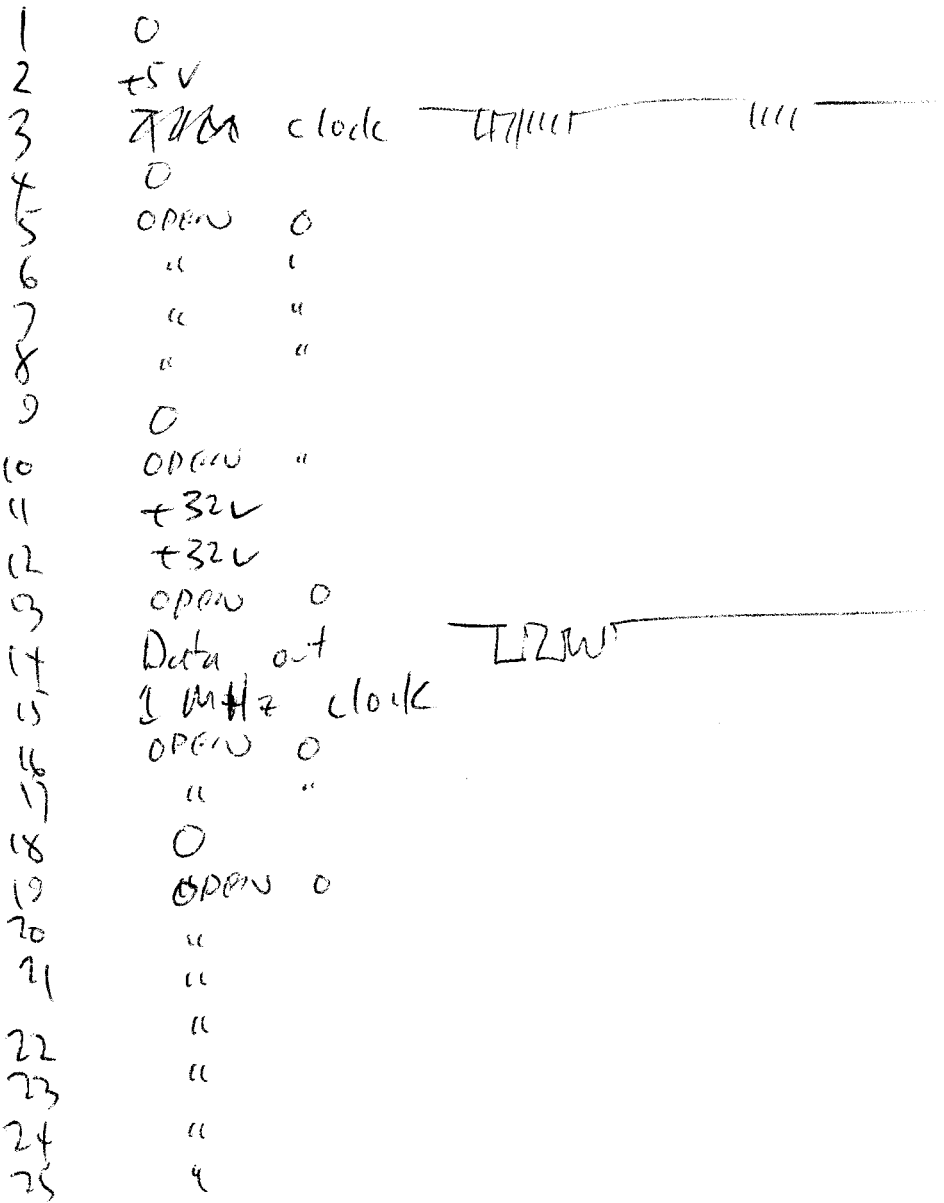 1 0
2 +5V
3 clock
4 0
5 OPEN 0
6 " "
7 " "
8 " "
9 0
10 OPEN "
11 +32V
12 +32V
13 OPEN 0
14 Data out
15 1 MHz clock
16 OPEN 0
17 " "
18 0
19 OPEN 0
20 "
21 "
22 "
23 "
24 "
25 "